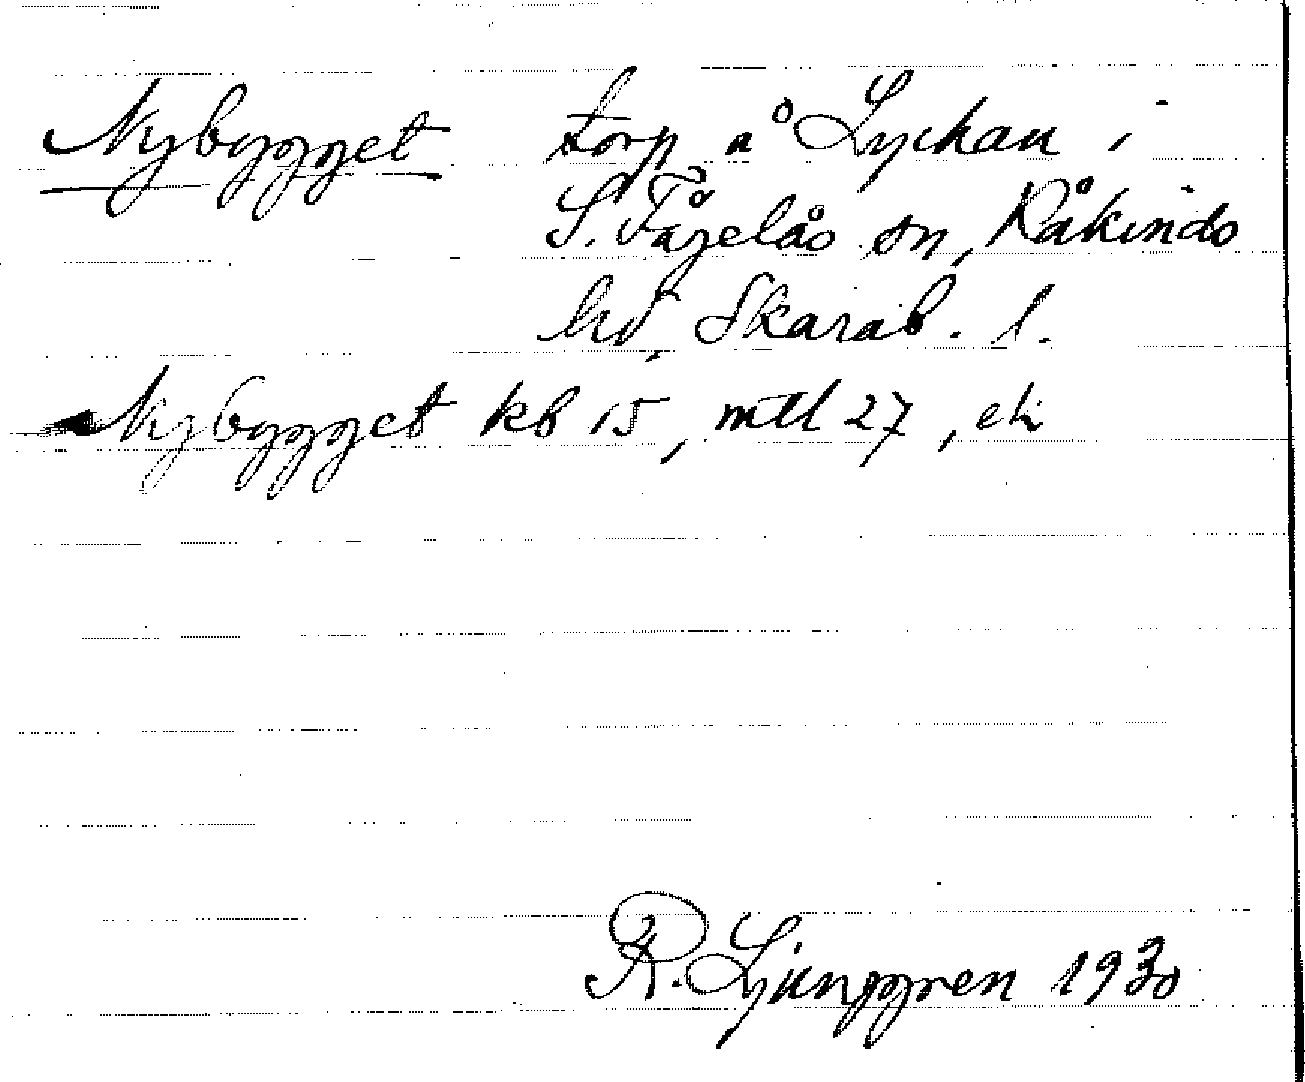 Nybygget torp å Lyckan i
S. Fågelås sn, Kåkinds
hd, Skarab. l.
Nybygget kb 15, mtl 27, ek
R. Ljunggren 1930